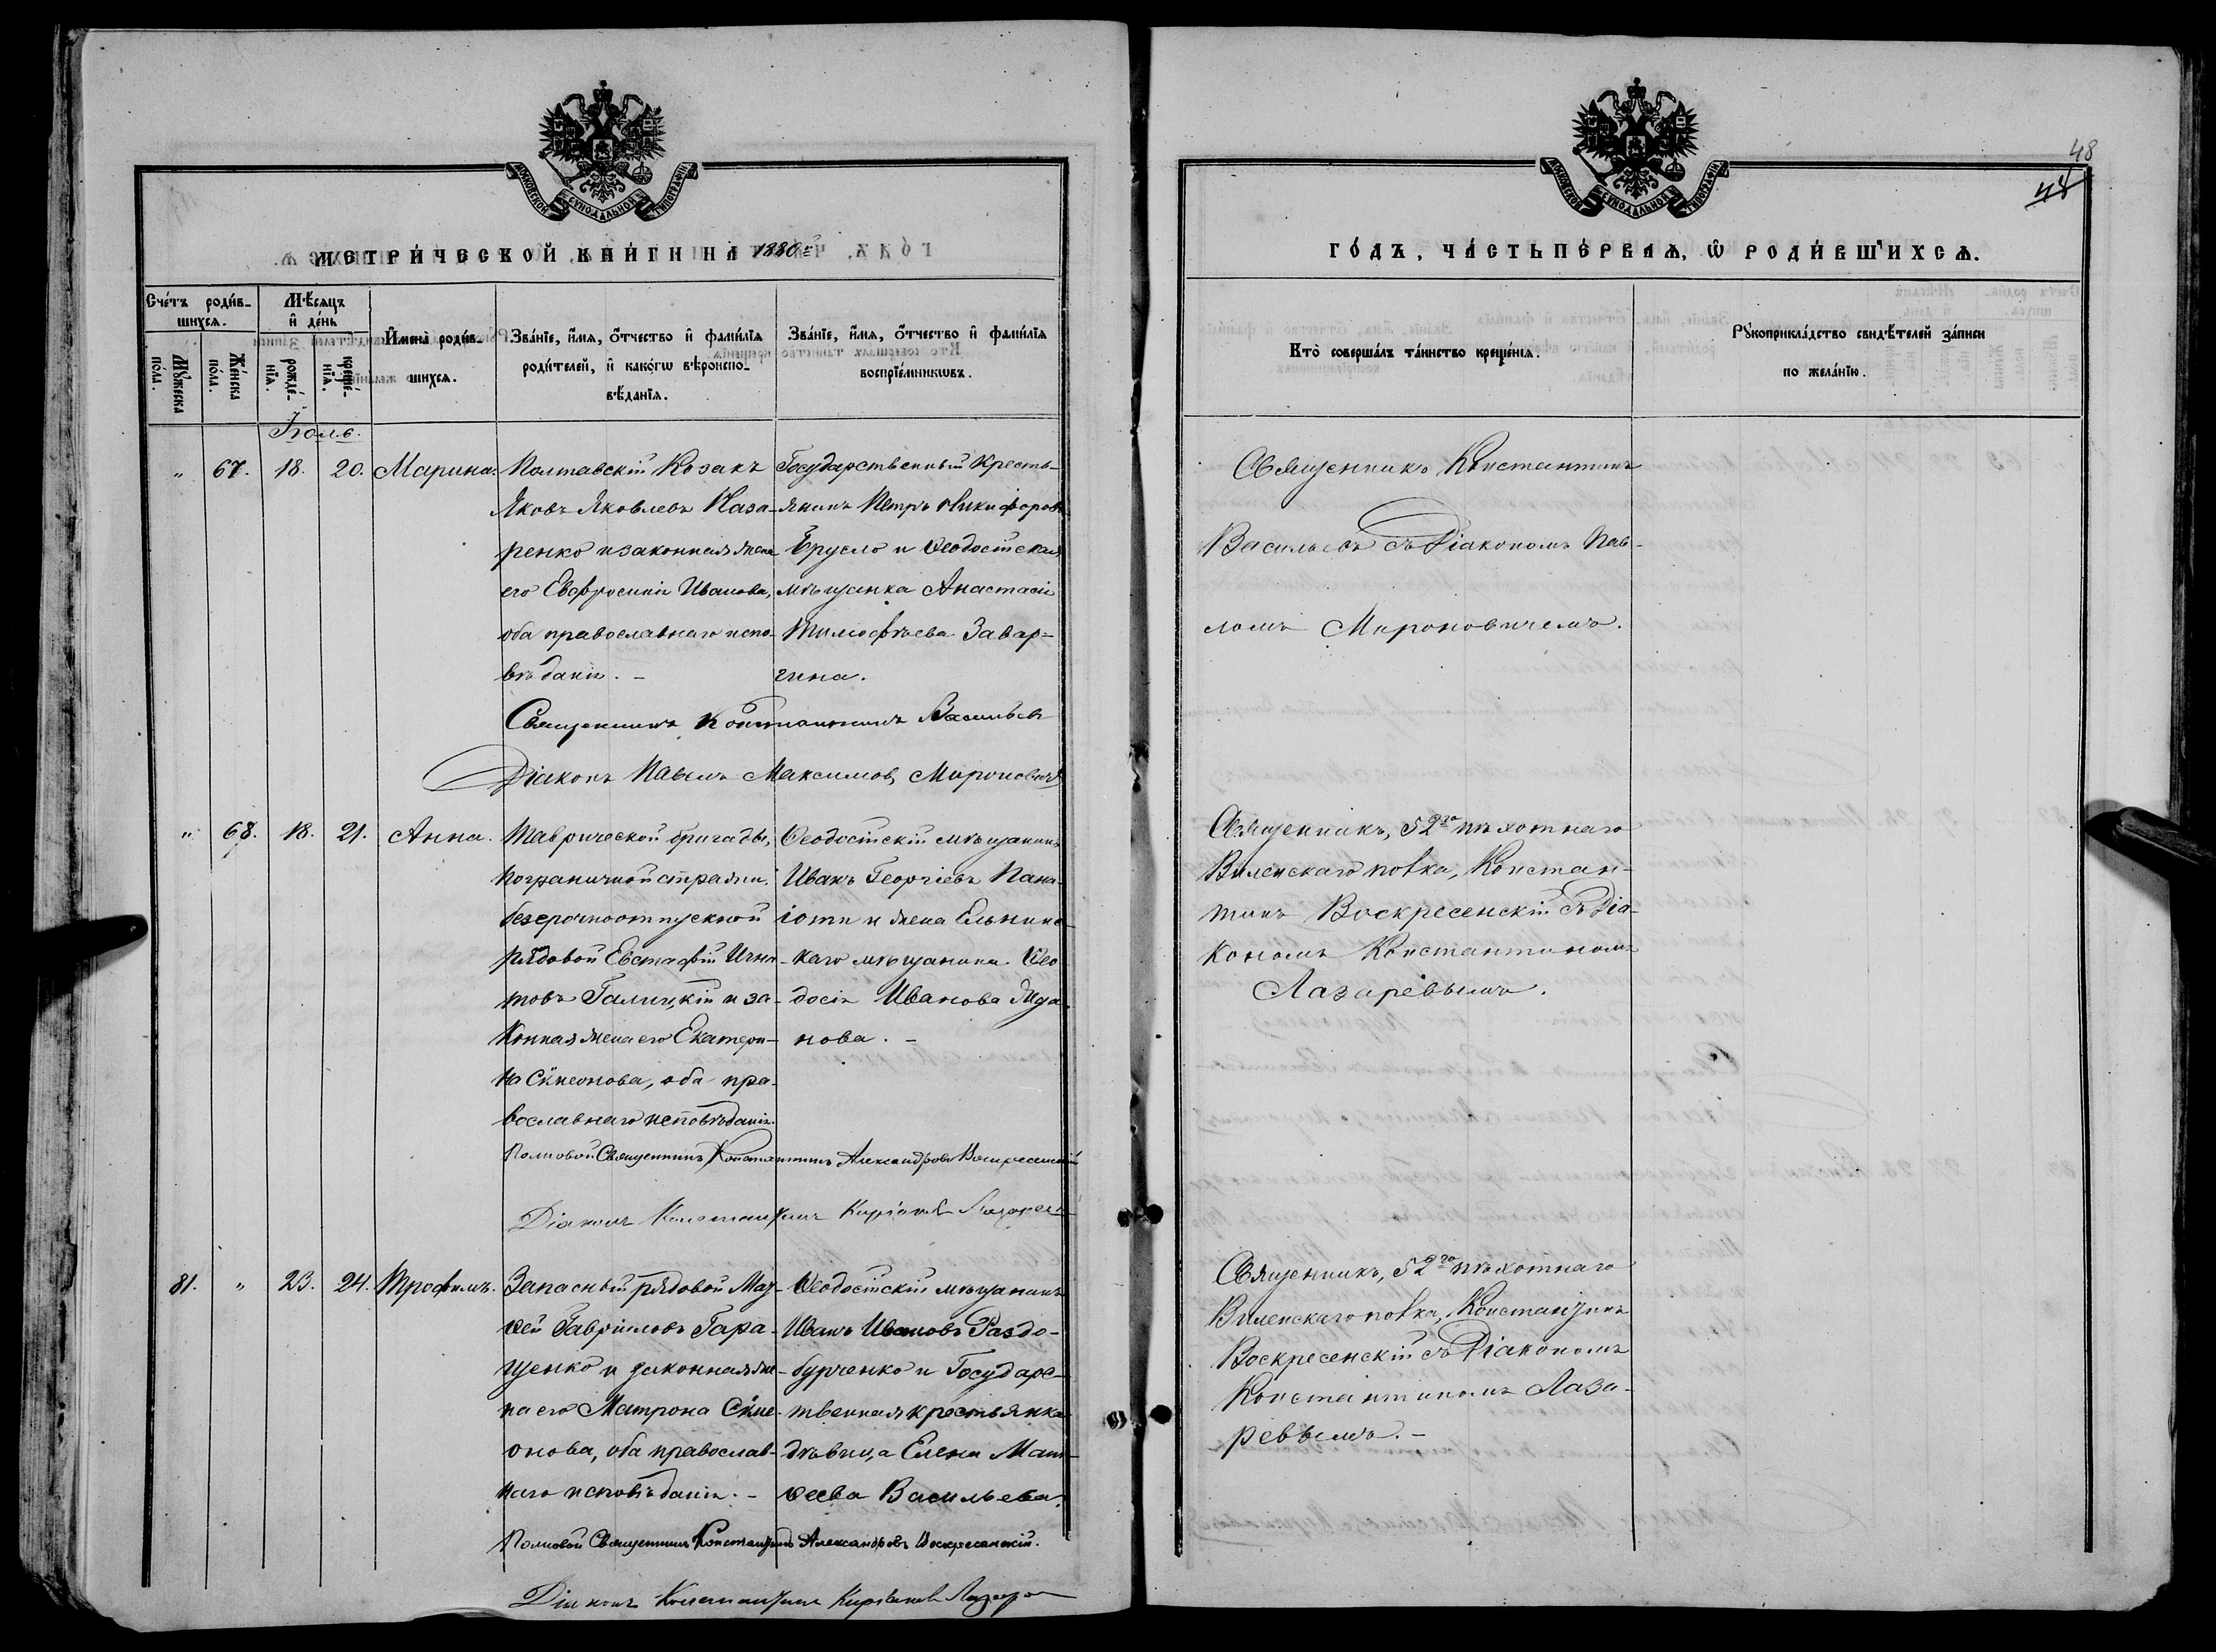 МОСКОВСКОЙ СѴНОДАЛЬНОЙ ТИПОГРАФІИ
МЕТРИ́ЧЕСКОЙ КНИ́ГИ НА 1880=
Сче́тъ роди́в-
шихсѧ.
Мѣ́сѧцъ
и҆ де́нь
Мꙋ́жеска по́ла.
Же́нска по́ла.
рожде́-нїѧ.
креще́-нїѧ.
И҆мена̀ роди́в-
шихсѧ.
Зва́нїе, и҆́мѧ, ѻ҆́тчество и҆ фами́лїѧ
роди́телей, и҆ како́гѡ вѣроиспо-
вѣ́данїѧ.
Зва́нїе, и҆́мѧ, ѻ҆́тчество и҆ фами́лїѧ
воспрїе́мникѡвъ.
Іюль.
" 67. 18. 20. Марина.
Полтавскій Козакъ
Яковъ Яковлевъ Наза-
ренко и законная жена
его Евфросинія Иванова,
оба православнаго испо-
вѣданія. –
Государственный кресть-
янинъ Петръ Никифоровъ
и Ѳеодосійская
мѣщанка Анастасія
Тимофѣева Завар-
гина.
Священникъ Константинъ Васильевъ
Діаконъ Павелъ Максимовъ Мироновичъ
" 68. 18. 21. Анна.
Таврической бригады,
пограничной стражи.
безсрочноотпускной
рядовой Евстафій Игна-
товъ Галицкій и за-
конная жена его Екатери-
на Сѵмеонова, оба пра-
вославнаго исповѣданія.
Ѳеодосійскій мѣщанинъ
Иванъ Георгіевъ Пана-
іоти и жена Ельнинс-
каго мѣщанина Ѳео
досія Иванова
нова. –
Полковой Священникъ Константинъ Александровъ Воскресенскій
Діаконъ Константинъ Киріаковъ Лазаревъ
81. " 23. 24. Трофимъ.
Запасный рядовой Мат-
ѳей Гавриловъ Гара-
щенко и законная же-
на его Матрона Сѵме-
онова, оба православ-
наго исповѣданія. –
Ѳеодосійскій мѣщанинъ
Иванъ Ивановъ Раздо-
бурченко и Государс-
твенная крестьянка
дѣвица Елена Мат-
ѳеева Васильева.
Полковой Священникъ Константинъ Александровъ Воскресенскій.
Діаконъ Константинъ Киріаковъ Лазарев
48
МОСКОВСКОЙ СѴНОДАЛЬНОЙ ТИПОГРАФІИ
ГО́ДЪ, ЧА́СТЬ ПЕ́РВАѦ, Ѽ РОДИ́ВШИХСѦ.
Кто̀ соверша́лъ та́инство креще́нїѧ.
Рꙋкоприкла́дство свидѣ́телей за́писи
по жела́нїю.
Священникъ Константинъ
Васильевъ съ Діакономъ Пав-
ломъ Мироновичемъ.
Священникъ, 52го пѣхотнаго
Виленскаго полка, Констан-
тинъ Воскресенскій съ Діа-
кономъ Константиномъ
Лазаревымъ.
Священникъ, 52го пѣхотнаго
Виленскаго полка, Константинъ
Воскресенскій съ Діакономъ
Константиномъ Лаза-
ревымъ. –